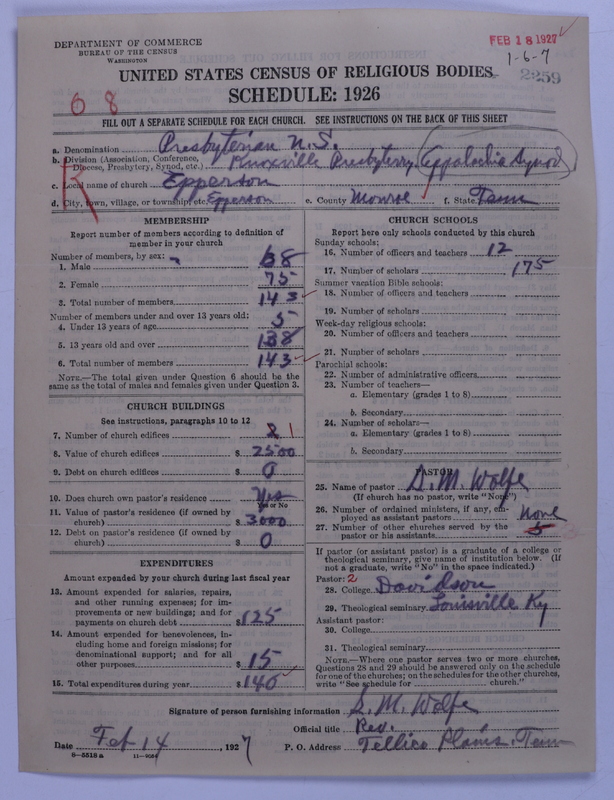 DEPARTMENT OF COMMERCE
BUREAU OF THE CENSUS
WASHINGTON
FEB 18 1927
1-6-7
2259
UNITED STATES CENSUS OF RELIGIOUS BODIES
SCHEDULE: 1926
68
FILL OUT A SEPARATE SCHEDULE FOR EACH CHURCH. SEE INSTRUCTIONS ON THE BACK OF THIS SHEET
a. Denomination Presbyterian U.S.
b. Division (Association, Conference, Diocese, Presbytery, Synod, etc.) Knoxville Presbytery (Appalachia Synod)
R
c. Local name of church Epperson
d. City, town, village, or township, etc. Epperson e. County Monroe f. State Tenn
MEMBERSHIP
Report number of members according to definition of
member in your church
Number of members, by sex:
1. Male 68
2. Female 75
3. Total number of members 143
Number of members under and over 13 years old:
4. Under 13 years of age 5
5. 13 years old and over 138
6. Total number of members 143
NOTE.—The total given under Question 6 should be the
same as the total of males and females given under Question 3.
CHURCH BUILDINGS
See instructions, paragraphs 10 to 12
7. Number of church edifices 2 1
8. Value of church edifices $ 2500
9. Debt on church edifices $ 0
10. Does church own pastor's residence Yes
Yes or No
11. Value of pastor's residence (if owned by
church) $ 3000
12. Debt on pastor's residence (if owned by
church) $ 0
EXPENDITURES
Amount expended by your church during last fiscal year
13. Amount expended for salaries, repairs,
and other running expenses; for im-
provements or new buildings; and for
payments on church debt $ 125
14. Amount expended for benevolences, in-
cluding home and foreign missions; for
denominational support; and for all
other purposes $ 15
15. Total expenditures during year $ 140
CHURCH SCHOOLS
Report here only schools conducted by this church
Sunday schools:
16. Number of officers and teachers 12
17. Number of scholars 175
Summer vacation Bible schools:
18. Number of officers and teachers
19. Number of scholars
Week-day religious schools:
20. Number of officers and teachers
21. Number of scholars
Parochial schools:
22. Number of administrative officers
23. Number of teachers—
a. Elementary (grades 1 to 8)
b. Secondary
24. Number of scholars—
a. Elementary (grades 1 to 8)
b. Secondary
PASTOR
25. Name of pastor S. M. Wolfe
(If church has no pastor, write "None")
26. Number of ordained ministers, if any, em-
ployed as assistant pastors None
27. Number of other churches served by the
pastor or his assistants 5
If pastor (or assistant pastor) is a graduate of a college or
theological seminary, give name of institution below. (If
not a graduate, write "No" in the space indicated.)
Pastor: 2
28. College Davidson
29. Theological seminary Louisville Ky
Assistant pastor:
30. College
31. Theological seminary
NOTE.—Where one pastor serves two or more churches,
Questions 28 and 29 should be answered only on the schedule
for one of the churches; on the schedules for the other churches,
write "See schedule for church."
Signature of person furnishing information S. M. Wolfe
Official title Rev.
Date Feb 14, 1927 P. O. Address Tellico Plains, Tenn
8—5518 a